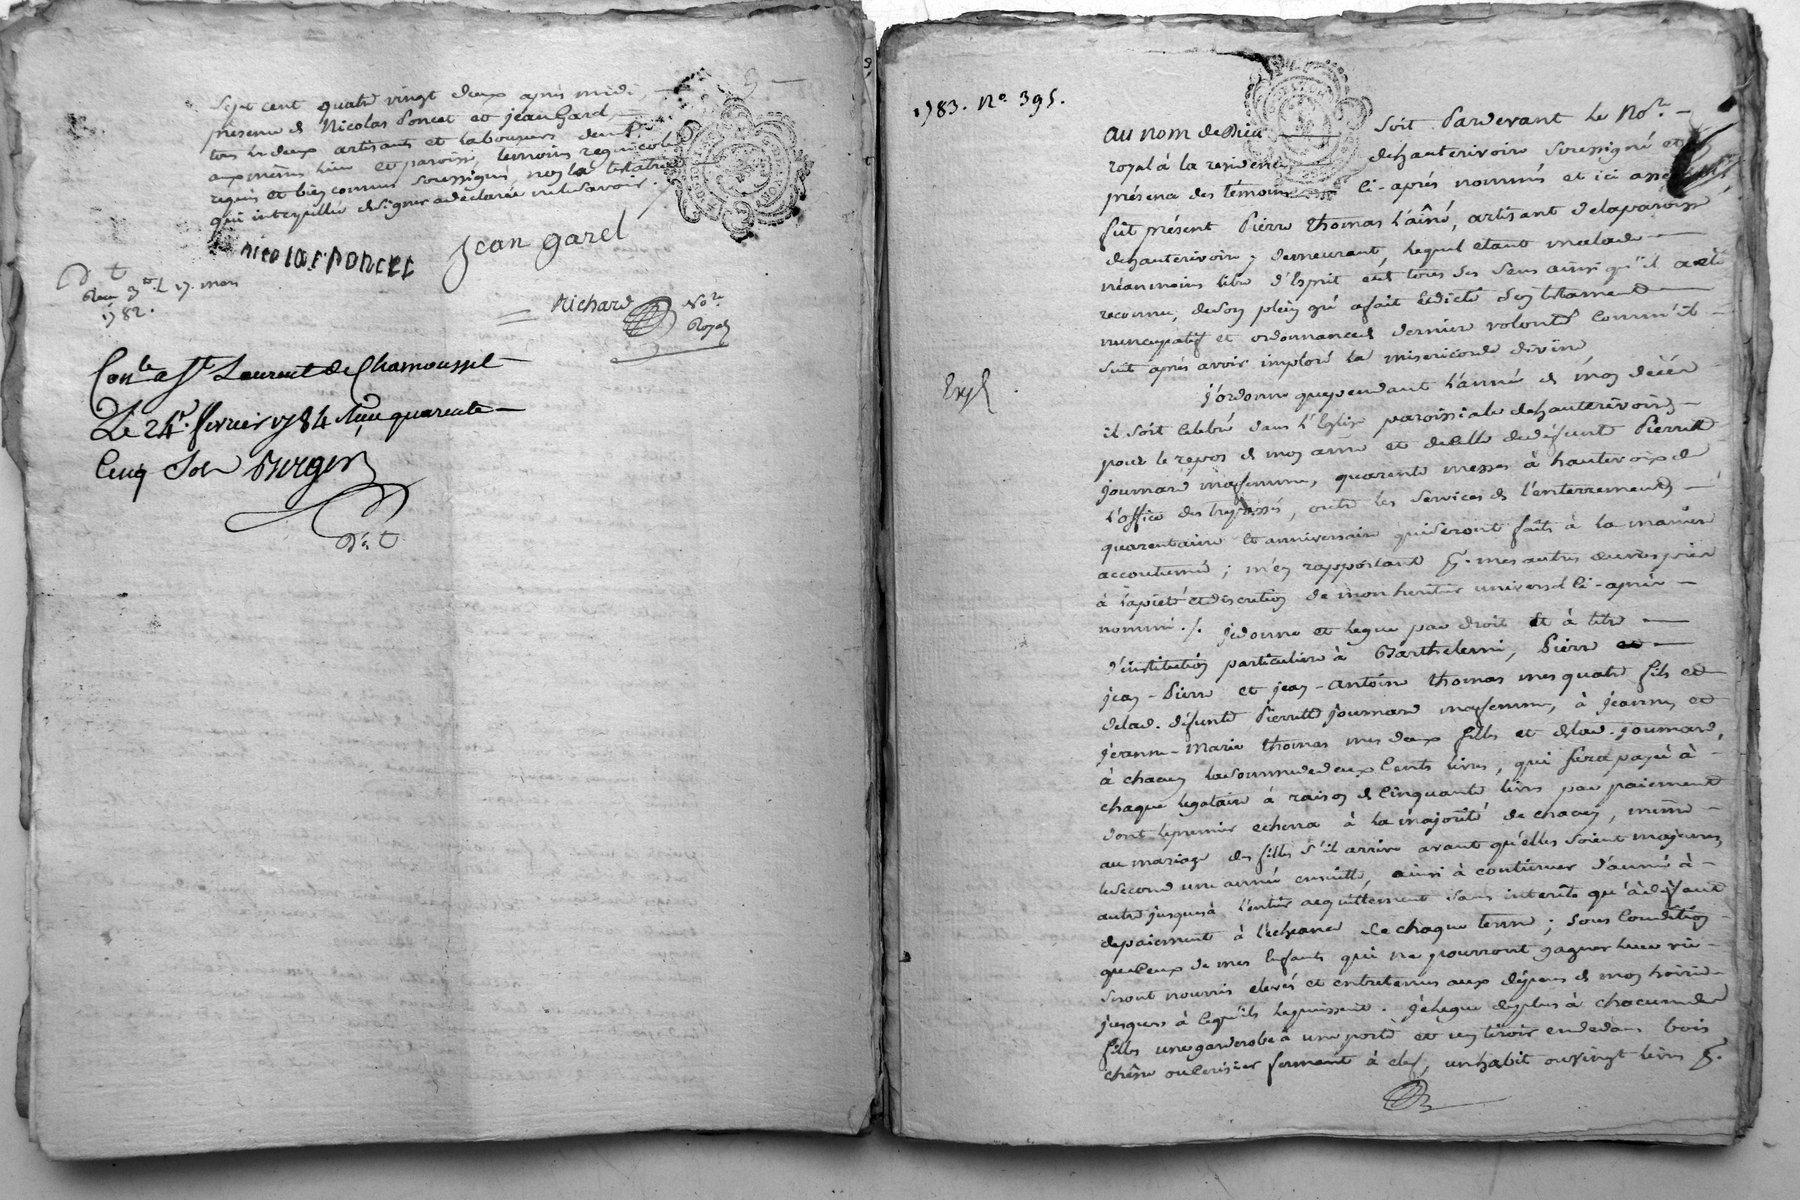 Sept cent quatre vingt deux après midi,
présence de Nicolas Poncet et jean Garel
tous les deux artisans et laboureurs dem.ts
aux mêmes lieu et paroisse, temoins regnicoles
requis et bien connus soussignés non la testatrice
qui interpellée de signer a declarée ne le savoir.
nicolas poncet
jean garel
D. t
Reçu 3 le 17. mars
1782.
Richard No.re
Royal
Con.lé a St Laurent de Chamousset
Le 24.e fevrier 1784 Reçu quarente
Cinq Sols
1783. N.o 395.
Exp.é
au nom de Dieu Soit Pardevant le No.re
royal à la residence dehauterivoire soussigné et
présence des témoins ci-après nommés et ici
fût présent Pierre thomas l'aîné, artisant delaparoisse
dehauterivoire y demeurant, lequel etant malade
néanmoins libre d'Esprit et tous ses sens ainsi qu'il a eté
reconnu, deson plein gré afait etdicté son testament
nuncupatif et ordonnance de derniere volonté comm'il
suit après avoir imploré la misericorde divine,
j'ordonne quependant l'année de mon décès
il soit celebré dans l'Eglise paroissiale dehauterivoire
pour le repos de mon ame et decelle dedéfunte Pierrette
journard mafemme, quarente messes à hautevoix de
l'office des trepassés, outre les services de l'enterrement
quarentaine et anniversaire quiseront faits à la maniere
accoutumée; m'en rapportant p.r mes autres oeuvres pies
à lapieté etdiscretion de monheritier universel ci-après
nommé ./. jedonne et legue par droit et à titre
d'institution particuliere à Barthelemi, Pierre
jean-Pierre et jean-antoine thomas mes quatre fils et
delad. défunte Pierrette journard mafemme, à jeanne et
jeanne-Marie thomas mes deux filles et delad. journard,
à chacun lasomme dedeux cents livres, qui sera payée à
chaque legataire à raison de cinquante livres par paiement
dont lepremier echerra à la majorité de chacun, même
au mariage des filles s'il arrive avant qu'elles soient majeures,
lesecond une année ensuitte, ainsi à continuer d'année à
autre jusques à l'entier acquittement sans interêts qu'à défaut
depaiement à l'echeance de chaque terme; sous condition
queceux de mes enfants qui ne pourront gagner leur vie
seront nourris elevés et entretenus aux dépens de mon hoirie
jusques à cequ'ils lepuissent. jelegue deplus à chacune des
filles une garderobe à une porte et un tiroir endedans bois
chêne ou cerisier fermant à clef, un habit ou vingt livres p.r